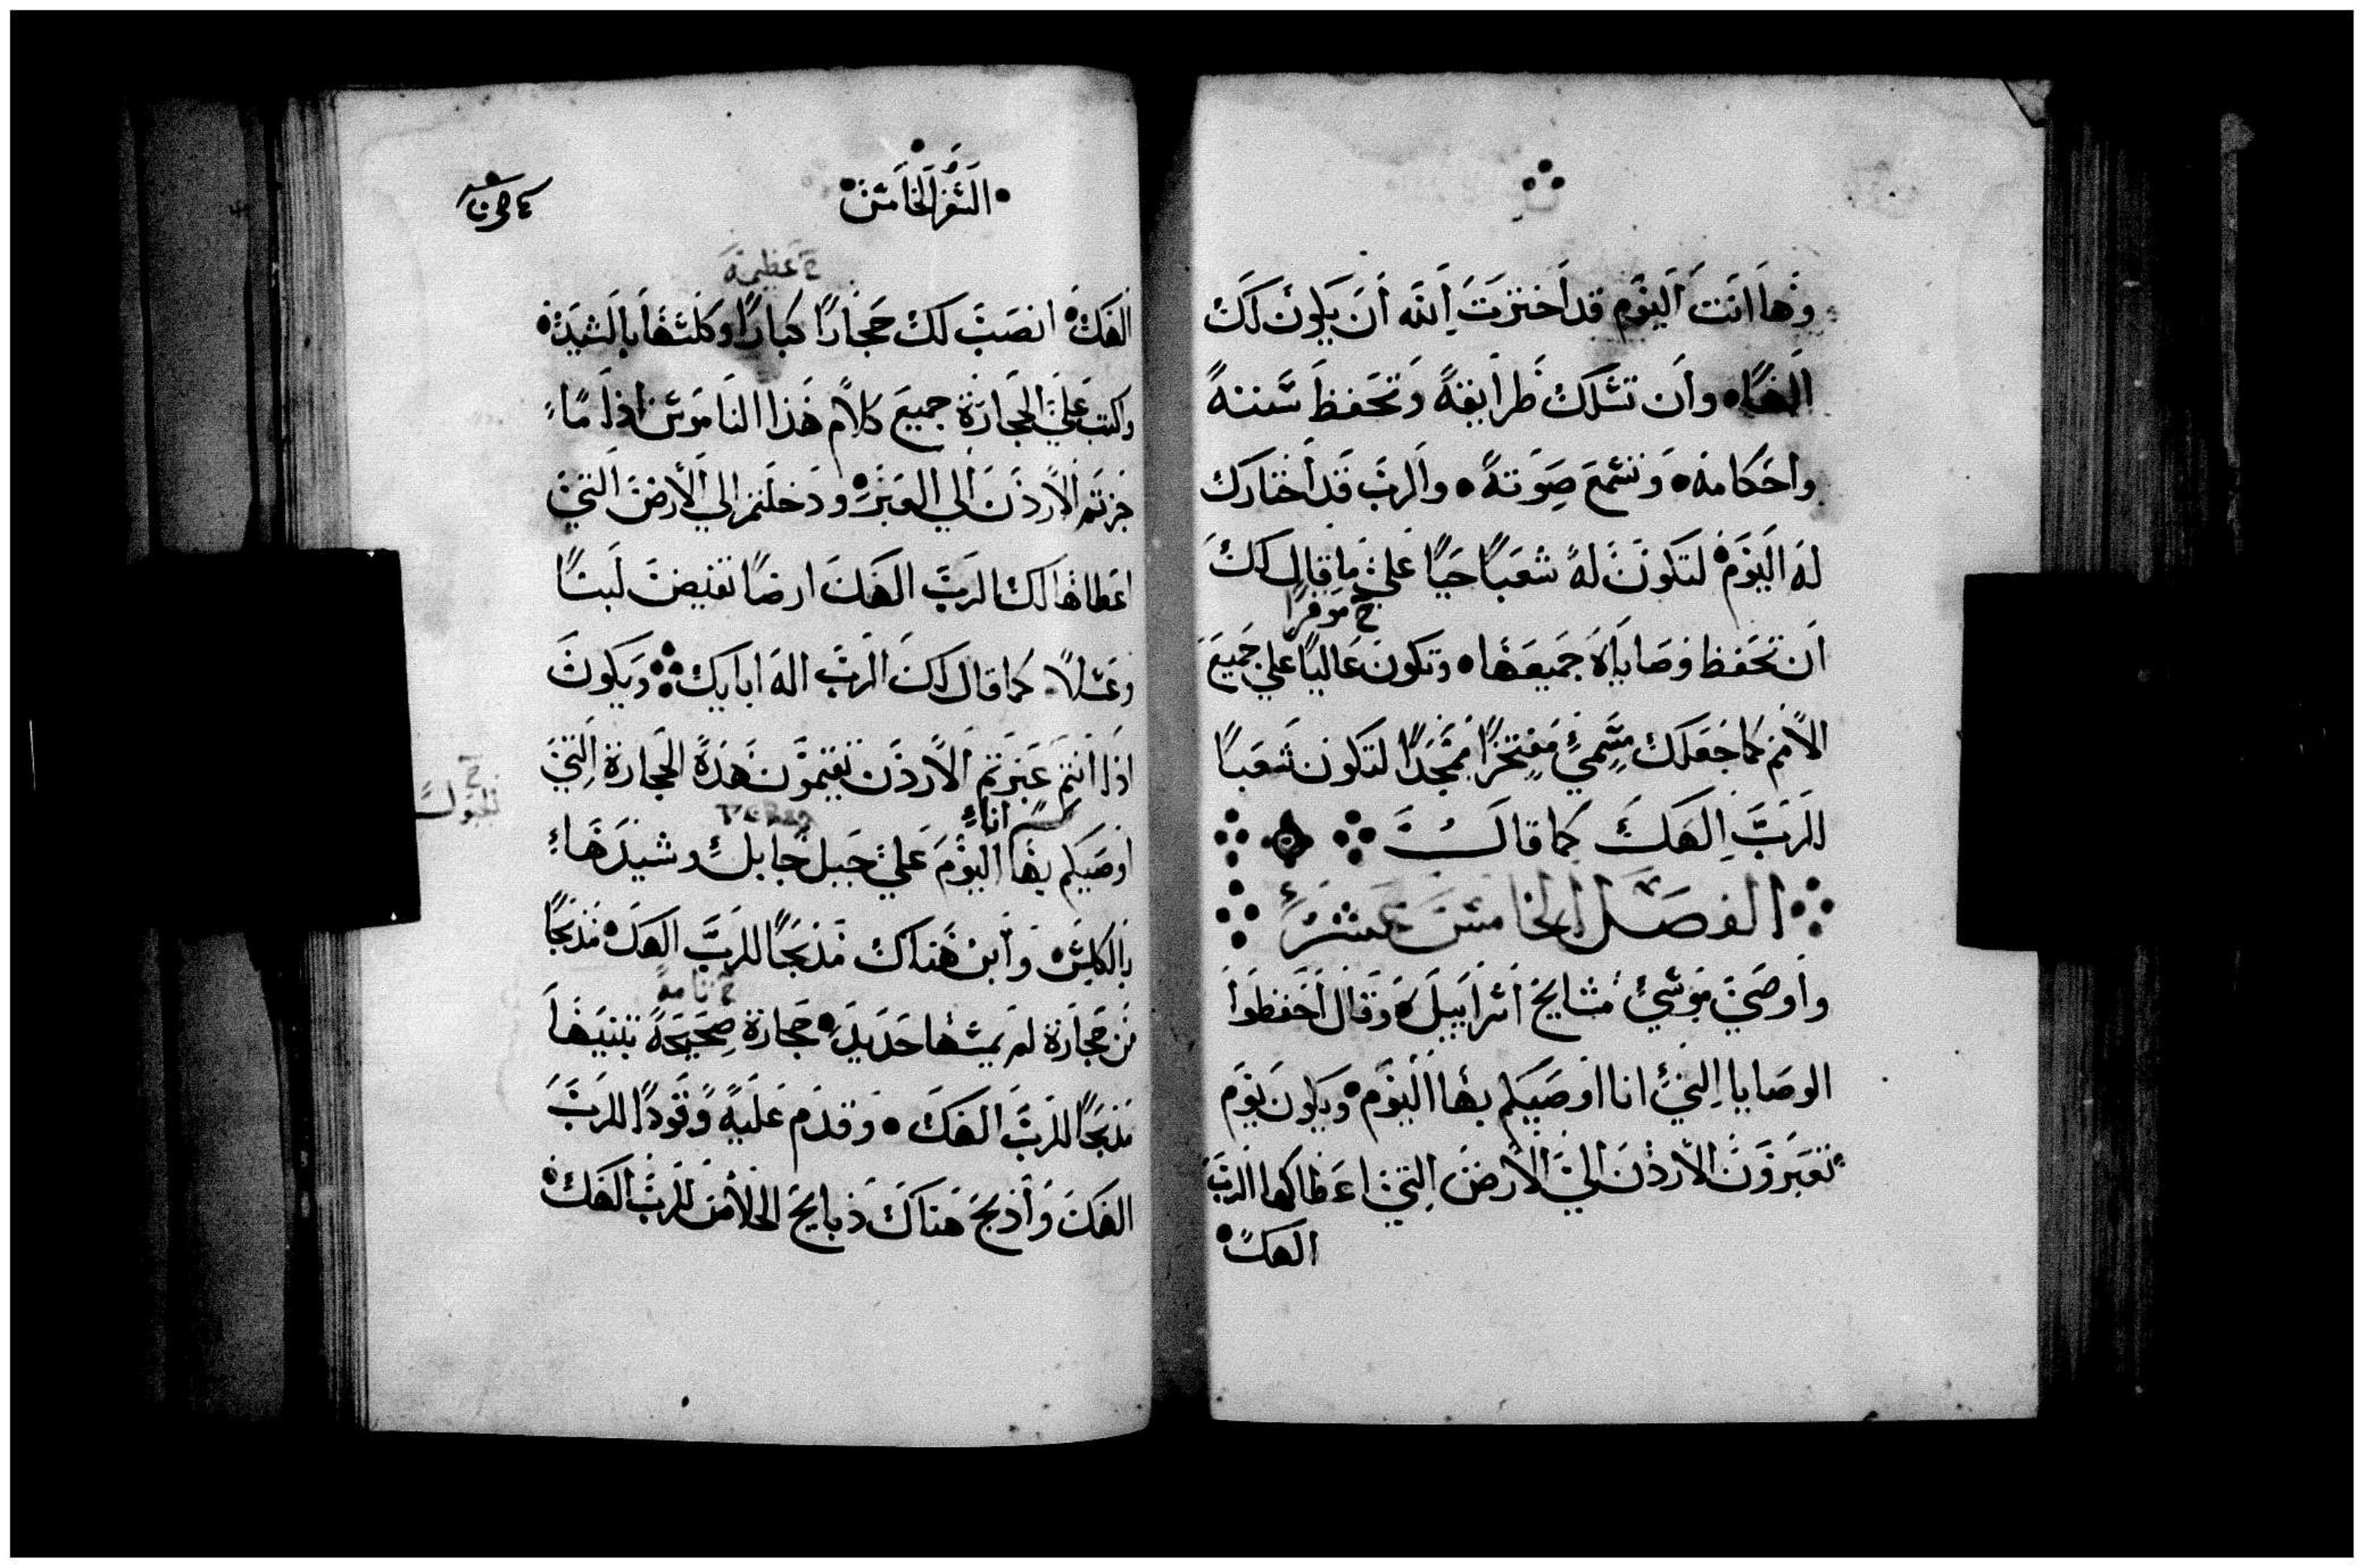 وها انت اليوم قد اخترت الله ان يكون لك
الهًا وان تسلك طرايقه وتحفظ سننه
واحكامه وتسمع صوته والرب قد اختارك
له اليوم لتكون له شعبًا حيًا علي ما قال لك
خ موقرًا
ان تحفظ وصاياه جميعها وتكون عاليًا علي جميع
الامم كما جعلك مسمي مفتخرًا ممجدًا لتكون شعبًا
للرب الهك كما قال
الفصل الخامس عشر
واوصي موسي مشايخ اسراييل وقال احفظوا
الوصايا التي انا اوصيكم بها اليوم ويكون يوم
تعبرون الاردن الي الارض التي اعطاكها الرب
الهك
السفر الخامس
خ عظيمة
الهك انصب لك حجارًا كبارًا وكلسها بالشيد
واكتب علي الحجارة جميع كلام هذا الناموس اذا ما
جزتم الاردن الي العبر ودخلتم الي الارض التي
اعطاها لك الرب الهك ارضًا تفيض لبنًا
وعسلا كما قال لك الرب اله ابايك ويكون
اذا انتم عبرتم الاردن تقيمون هذه الحجارة التي
انا
اوصيكم بها اليوم علي جبل جابل وشيدها
بالكلس وابن هناك مذبحًا للرب الهك مذبحًا
خ تامة
من حجارة لم يمسها حديد حجارة صحيحة تبنيها
مذبحًا للرب الهك وقدم عليه وقودًا للرب
الهك واذبح هناك ذبايح الخلاص للرب الهك